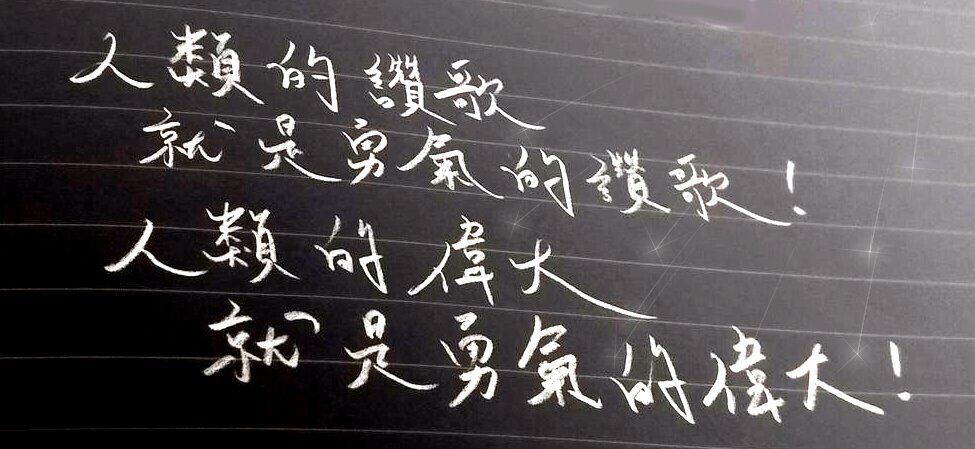 人類的讚歌
就是勇氣的讚歌！
人類的偉大
就是勇氣的偉大！